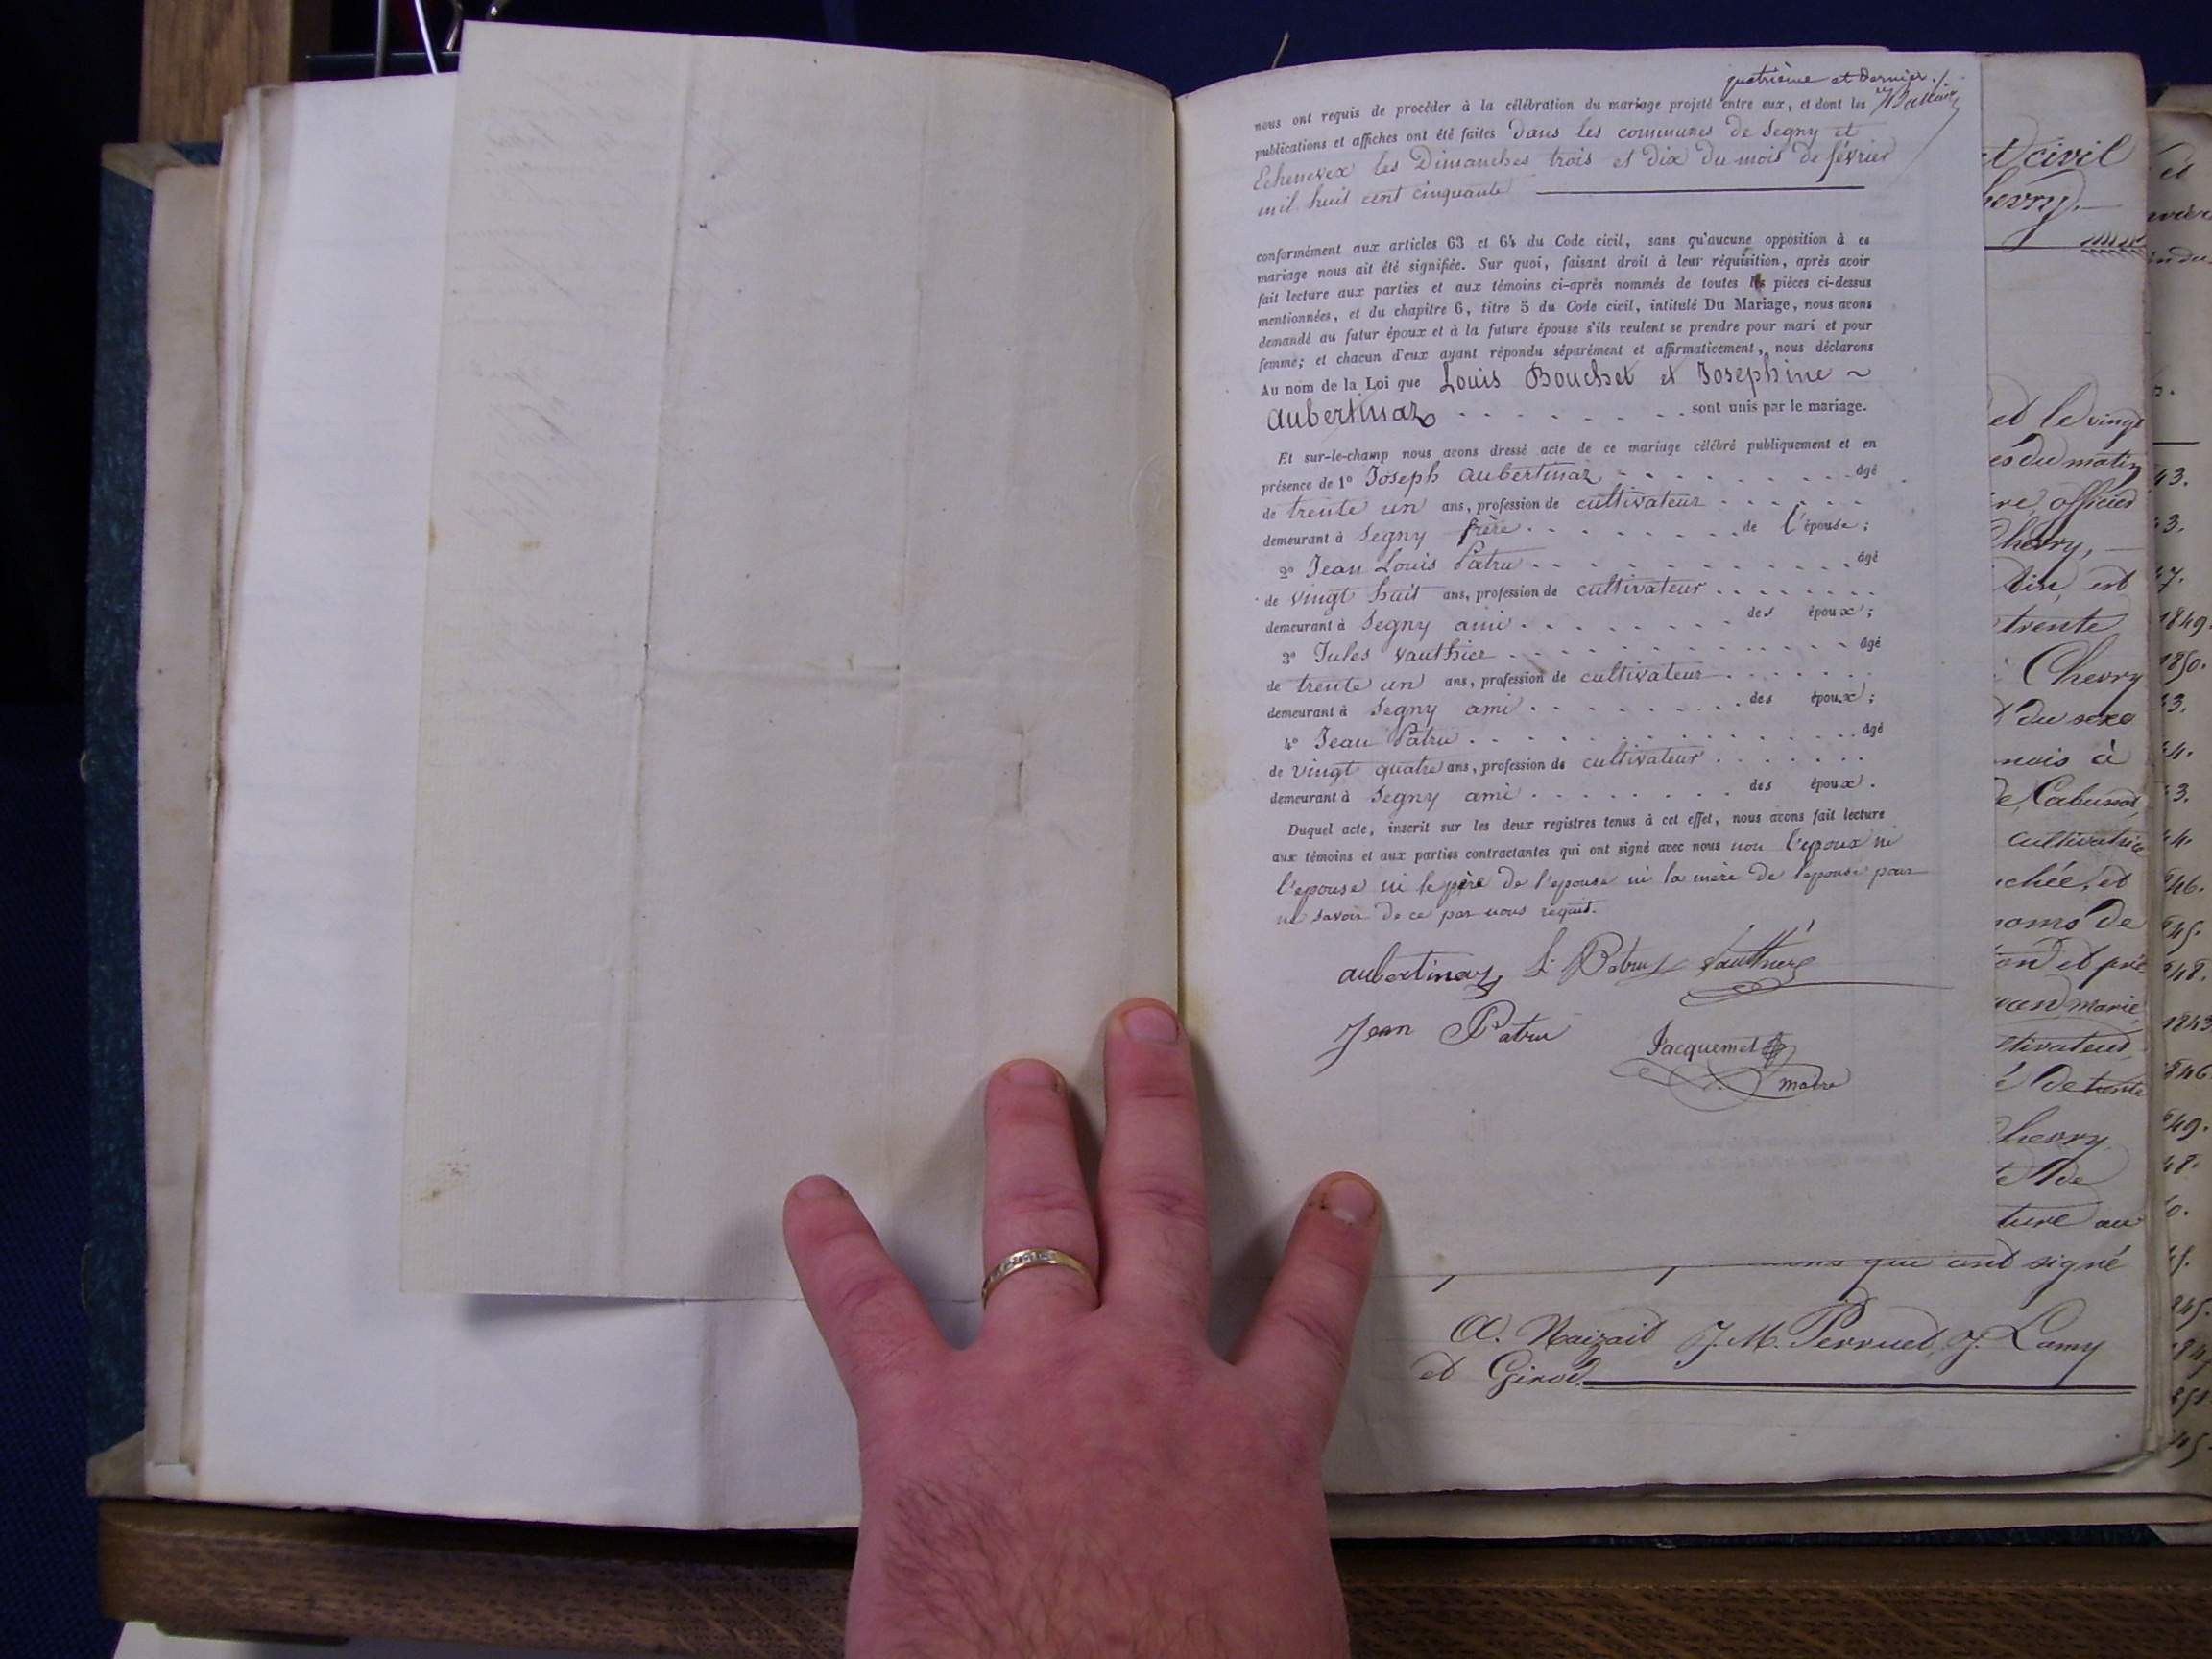 quatrième et dernier./.
nous ont requis de procéder à la célébration du mariage projeté entre eux, et dont les
publications et affiches ont été faites dans les communes de Segny et
Echenevex les Dimanches trois et dix du mois de février
mil huit cent cinquante
conformément aux articles 63 et 64 du Code civil, sans qu'aucune opposition à ce
mariage nous ait été signifiée. Sur quoi, faisant droit à leur réquisition, après avoir
fait lecture aux parties et aux témoins ci-après nommés de toutes les pièces ci-dessus
mentionnées, et du chapitre 6, titre 5 du Code civil, intitulé Du Mariage, nous avons
demandé au futur époux et à la future épouse s'ils veulent se prendre pour mari et pour
femme; et chacun d'eux ayant répondu séparément et affirmativement, nous déclarons
Au nom de la Loi que Louis Bouchet et Josephine ~
Aubertinaz - - - - - - - - sont unis par le mariage.
Et sur-le-champ nous avons dressé acte de ce mariage célébré publiquement et en
présence de 1° Joseph Aubertinaz - - - - - - - âgé
de trente un ans, profession de cultivateur - - - - - -
demeurant à Segny frère - - - - - - - de l'épouse;
2° Jean Louis Patru - - - - - - - - - - âgé
de vingt huit ans, profession de cultivateur - - - - - - -
demeurant à Segny ami - - - - - - - des époux;
3° Jules Vauthier - - - - - - - - - - âgé
de trente un ans, profession de cultivateur - - - - - -
demeurant à Segny ami - - - - - - - des époux;
4° Jean Patru - - - - - - - - - - - âgé
de vingt quatre ans, profession de cultivateur - - - - - -
demeurant à Segny ami - - - - - - - des époux.
Duquel acte, inscrit sur les deux registres tenus à cet effet, nous avons fait lecture
aux témoins et aux parties contractantes qui ont signé avec nous non l'epoux ni
l'epouse ni le père de l'epouse ni la mère de l'epouse pour
ne savoir de ce par nous requis.
aubertinaz L. Patru Vauthier
Jean Patru
Jacquemet
maire
et civil
Chevry.
et le vingt
es du matin
re, officier
Chevry,
trente
Chevry
du sexe
nois à
cultivatrice
chée, et
noms de
marie
ltivateur,
de trente
Chevry
ture au
que ont signé
A. Naizait J.M. Perruet, J. Lamy
et Girod
43.
1849.
1850.
1843